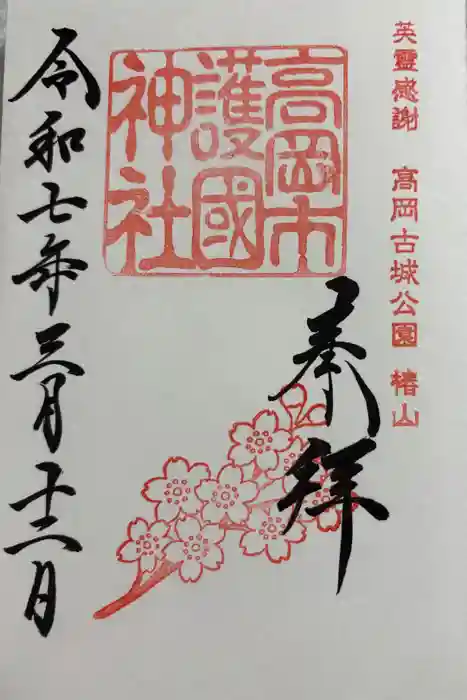 英霊感謝　高岡古城公園　椿山
奉拝
高岡市
護國
神社
令和七年三月十二日